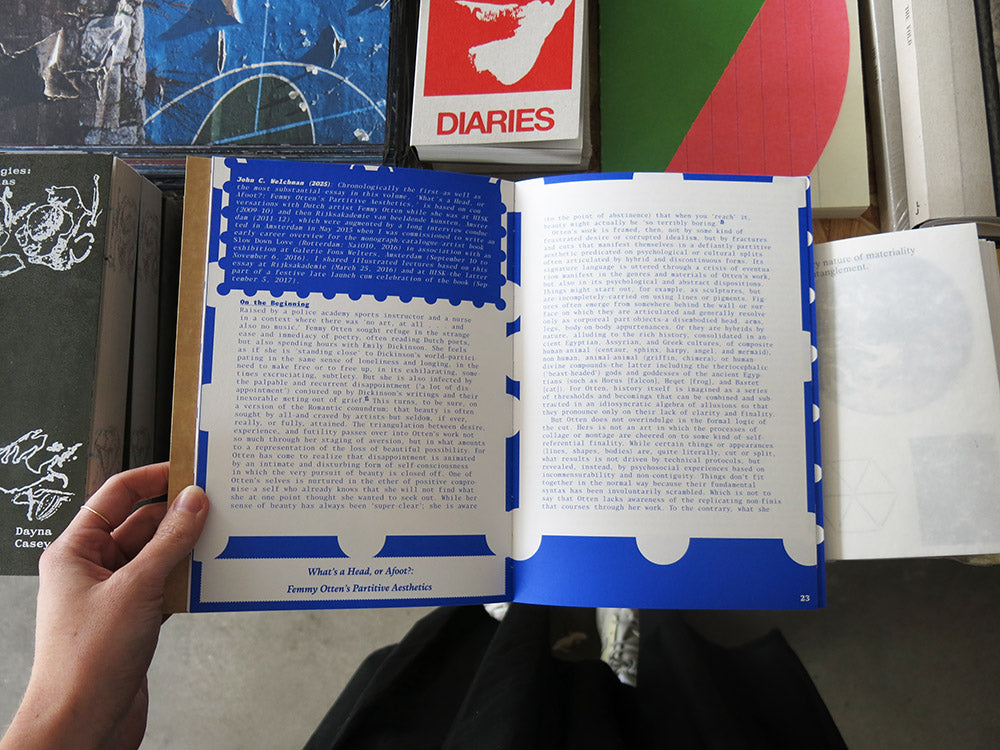 DIARIES
THE FOLD
gies:
as
Dayna
Casey
y nature of materiality
tanglement.
John C. Welchman (2025): Chronologically the first as well as
the most substantial essay in this volume, 'What's a Head, or
Afoot?: Femmy Otten's Partitive Aesthetics,' is based on con
versations with Dutch artist Femmy Otten while she was at HISK
(2009-10) and then Rijksakademie van Beeldende kunsten, Amster
dam (2011-13), which were augmented by a long interview conduc
ted in Amsterdam in May 2015 when I was commissioned to write an
early career overview for the monograph catalogue artist book
Slow Down Love (Rotterdam: Nai010, 2016) in association with an
exhibition at Galerie Fons Welters, Amsterdam (September 10
November 6, 2016). I shared illustrated lectures based on this
essay at Rijksakademie (March 25, 2016) and at HISK (the latter
part of a festive late launch cum celebration of the book (Sep
tember 5, 2017).
On the Beginning
Raised by a police academy sports instructor and a nurse
in a context where there was 'no art, at all . . . and
also no music,' Femmy Otten sought refuge in the strange
ease and immediacy of poetry, often reading Dutch poets,
but also spending hours with Emily Dickinson. She feels
as if she is 'standing close' to Dickinson's world—partici-
pating in the same sense of loneliness and longing, in the
need to make free or to free up, in its exhilarating, some
times excruciating, subtlety. But she is also infected by
the palpable and recurrent disappointment ('a lot of dis
appointment') conjured up by Dickinson's writings and their
inexorable meting out of grief. This turns, to be sure, on
a version of the Romantic conundrum: that beauty is often
sought by all—and craved by artists—but seldom, if ever,
really, or fully, attained. The triangulation between desire,
experience, and futility passes over into Otten's work not
so much through her staging of aversion, but in what amounts
to a representation of the loss of beautiful possibility. For
Otten has come to realize that disappointment is animated
by an intimate and disturbing form of self-consciousness
in which the very pursuit of beauty is closed off. One of
Otten's selves is nurtured in the ether of positive compro
mise—a self who already knows that she will not find what
she at one point thought she wanted to seek out. While her
sense of beauty has always been 'super-clear'; she is aware
What's a Head, or Afoot?:
Femmy Otten's Partitive Aesthetics
(to the point of abstinence) that when you 'reach' it,
beauty might actually be 'so terribly boring.'
Otten's work is framed, then, not by some kind of
frustrated desire or corrupted idealism, but by fractures
and cuts that manifest themselves in a defiantly partitive
aesthetic predicated on psychological or cultural splits
often articulated by hybrid and discontinuous forms. Its
signature language is uttered through a crisis of eventua
tion manifest in the genres and materials of Otten's work,
but also in its psychological and abstract dispositions.
Things might start out, for example, as sculptures, but
are incompletely-carried on using lines or pigments. Fig
ures often emerge from somewhere behind the wall or sur
face on which they are articulated and generally resolve
only as corporeal part objects—a disembodied head, arms,
legs, body on body appurtenances. Or they are hybrids by
nature, alluding to the rich history, consolidated in an
cient Egyptian, Assyrian, and Greek cultures, of composite
human-animal (centaur, sphinx, harpy, angel, and mermaid),
non human, animal-animal (griffin, chimera), or human
divine compounds—the latter including the theriocephalic
('beast headed') gods and goddesses of the ancient Egyp
tians (such as Horus [falcon], Heqet [frog], and Bastet
[cat]). For Otten, history itself is imagined as a series
of thresholds and becomings that can be combined and sub
tracted in an idiosyncratic algebra of allusions so that
they pronounce only on their lack of clarity and finality.
But Otten does not overindulge in the formal logic of
the cut. Hers is not an art in which the processes of
collage or montage are cheered on to some kind of self-
referential finality. While certain things or appearances
(lines, shapes, bodies) are, quite literally, cut or split,
what results is not driven by technical protocols, but
revealed, instead, by psychosocial experiences based on
incommensurability and non-contiguity. Things don't fit
together in the normal way because their fundamental
syntax has been involuntarily scrambled. Which is not to
say that Otten lacks awareness of the replicating non-finis
that courses through her work. To the contrary, what she
23